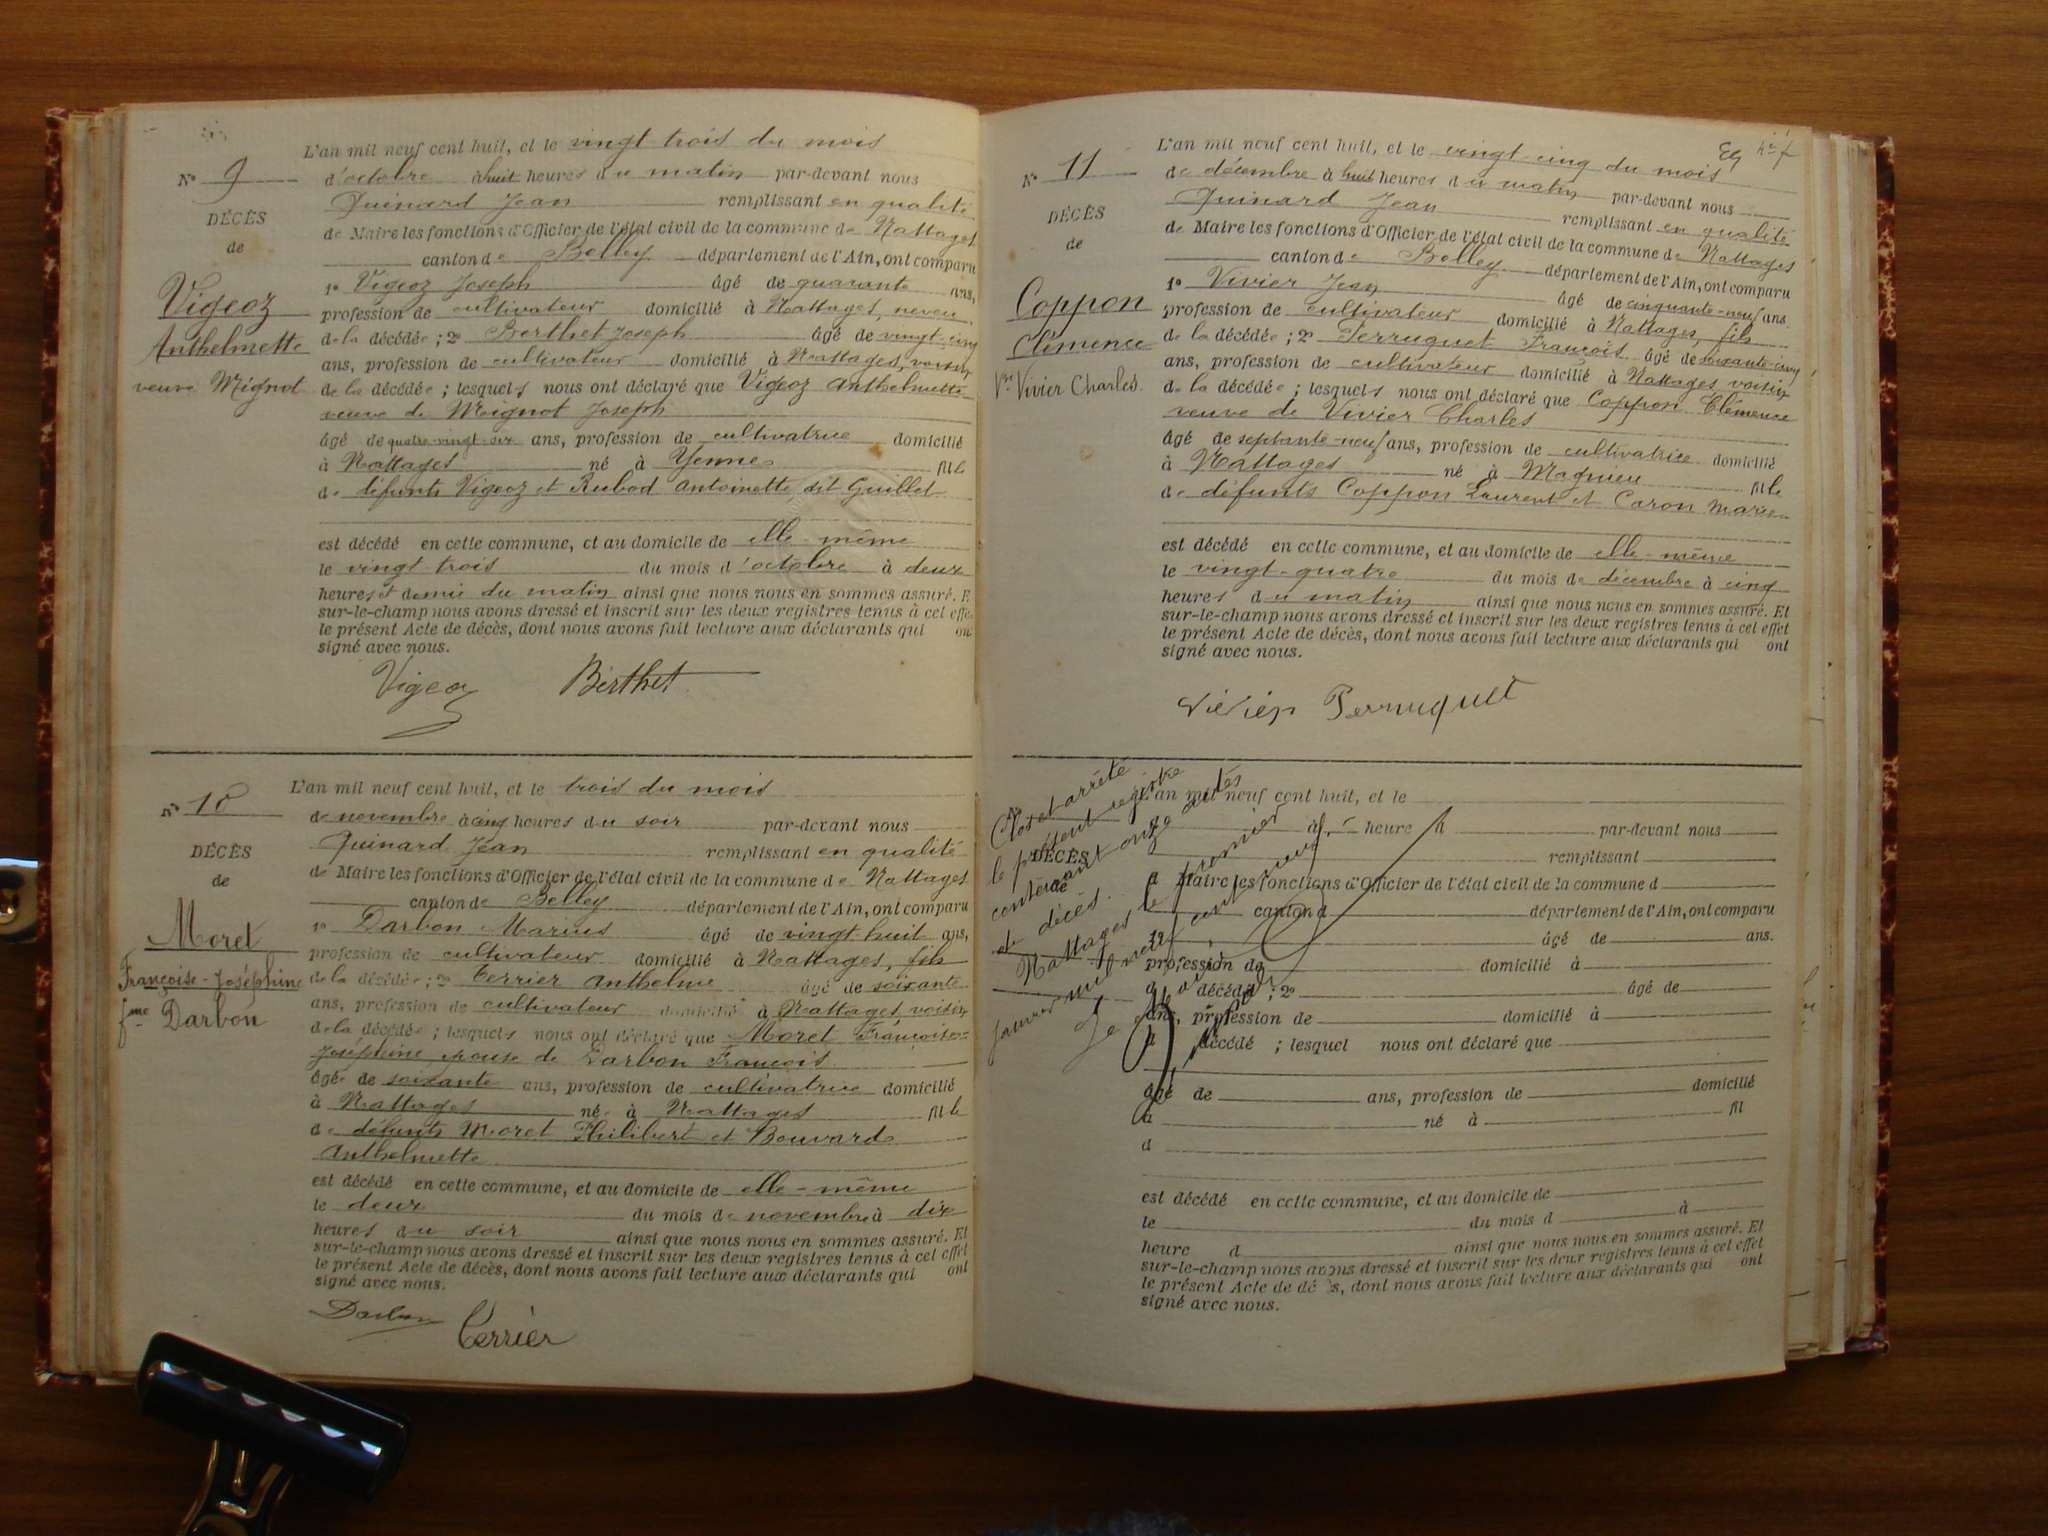 L'an mil neuf cent huit, et le vingt trois du mois
N° 9 d'octobre à huit heures du matin par-devant nous
DÉCÈS
de
Quinard Jean remplissant en qualité
de Maire les fonctions d'Officier de l'état civil de la commune de Nattages
canton de Belley département de l'Ain, ont comparu
Vigeoz
Anthelmette
veuve Mignot
1° Vigeoz Joseph âgé de quarante ans,
profession de cultivateur domicilié à Nattages, neveu
de la décédée ; 2° Berthet Joseph âgé de vingt-cinq
ans, profession de cultivateur domicilié à Nattages, voisin
de la décédée ; lesquels nous ont déclaré que Vigeoz Anthelmette
veuve de Mignot Joseph
âgé de quatre-vingt-six ans, profession de cultivatrice domicilié
à Nattages né à Yenne fille
de défunts Vigeoz et Rubod Antoinette dit Guillet
est décédé en cette commune, et au domicile de elle-même
le vingt-trois du mois d'octobre à deux
heures et demie du matin ainsi que nous nous en sommes assuré. E
sur-le-champ nous avons dressé et inscrit sur les deux registres tenus à cet effe
le présent Acte de décès, dont nous avons fait lecture aux déclarants qui on
signé avec nous.
Vigeoz Berthet
L'an mil neuf cent huit, et le trois du mois
N° 10 de novembre à cinq heures du soir par-devant nous
DÉCÈS
de
Quinard Jean remplissant en qualité
de Maire les fonctions d'Officier de l'état civil de la commune de Nattages
canton de Belley département de l'Ain, ont comparu
Moret
Françoise-Joséphine
fme Darbon
1° Darbon Marius âgé de vingt huit ans,
profession de cultivateur domicilié à Nattages, fils
de la décédée ; 2° Terrier Anthelme âgé de soixante
ans, profession de cultivateur domicilié à Nattages voisin
de la décédée ; lesquels nous ont déclaré que Moret Françoise
Joséphine épouse de Darbon François
âgée de soixante ans, profession de cultivatrice domicilié
à Nattages née à Nattages fille
de défunts Moret Philibert et Bouvard
Anthelmette
est décédé en cette commune, et au domicile de elle-même
le deux du mois de novembre à dix
heures du soir ainsi que nous nous en sommes assuré. Et
sur-le-champ nous avons dressé et inscrit sur les deux registres tenus à cet effet
le présent Acte de décès, dont nous avons fait lecture aux déclarants qui ont
signé avec nous.
Darbon Terrier
L'an mil neuf cent huit, et le vingt cinq du mois
N° 11 de décembre à huit heures du matin par-devant nous
DÉCÈS
de
Quinard Jean remplissant en qualité
de Maire les fonctions d'Officier de l'état civil de la commune de Nattages
canton de Belley département de l'Ain, ont comparu
Coppon
Clémence
Vve Vivier Charles.
1° Vivier Jean âgé de cinquante-neuf ans.
profession de cultivateur domicilié à Nattages, fils
de la décédée ; 2° Perruquet François âgé de soixante-cinq
ans, profession de cultivateur domicilié à Nattages voisin
de la décédée ; lesquels nous ont déclaré que Coppon Clémence
veuve de Vivier Charles
âgé de septante-neuf ans, profession de cultivatrice domicilié
à Nattages né à Magnieu fille
de défunts Coppon Laurent et Caron Marie
est décédé en cette commune, et au domicile de elle-même
le vingt-quatre du mois de décembre à cinq
heures du matin ainsi que nous nous en sommes assuré. Et
sur-le-champ nous avons dressé et inscrit sur les deux registres tenus à cet effet
le présent Acte de décès, dont nous avons fait lecture aux déclarants qui ont
signé avec nous.
Vivier Perruquet
Clos et arrêté
le présent registre
contenant onze actes
de décès.
Nattages le premier
janvier mil neuf cent neuf
Le Maire
L'an mil neuf cent huit, et le
N° à heure d par-devant nous
DÉCÈS
de
remplissant
d Maire les fonctions d'Officier de l'état civil de la commune d
canton d département de l'Ain, ont comparu
1° âgé de ans.
profession de domicilié à
d décédé ; 2° âgé de
ans, profession de domicilié à
d décédé ; lesquel nous ont déclaré que
âgé de ans, profession de domicilié
à né à fil
d
est décédé en cette commune, et au domicile de
le du mois d à
heure d ainsi que nous nous en sommes assuré. Et
sur-le-champ nous avons dressé et inscrit sur les deux registres tenus à cet effet
le présent Acte de dé s, dont nous avons fait lecture aux déclarants qui ont
signé avec nous.